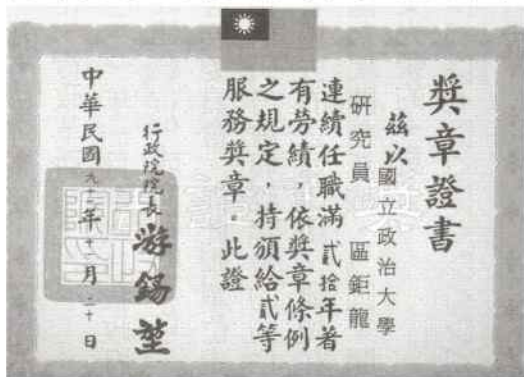 獎章證書
茲以國立政治大學
研究員 區鉅龍
連續任職滿貳拾年著
有勞績，依獎章條例
之規定，特頒給貳等
服務獎章。此證
行政院院長 游錫堃
中華民國九十二年十一月二十日